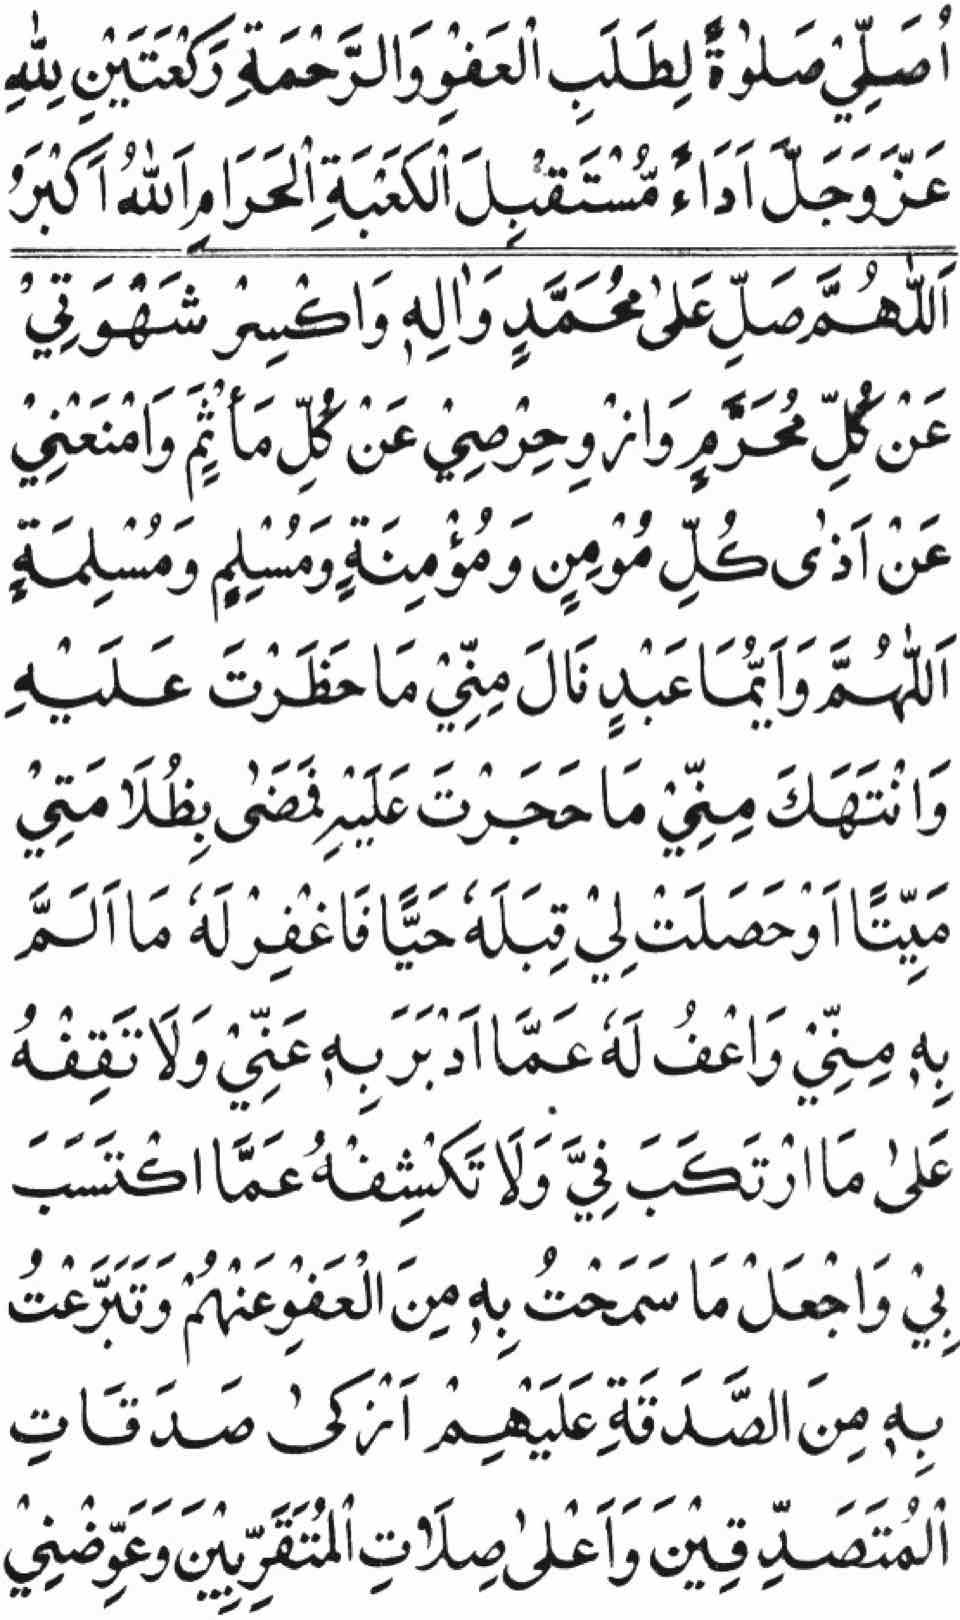 اُصَلِّيْ صَلٰوةً لِطَلَبِ الْعَفْوِ وَالرَّحْمَةِ رَكْعَتَيْنِ لِلّٰهِ
عَزَّ وَجَلَّ اَدَاءً مُّسْتَقْبِلَ الْكَعْبَةِ الْحَرَامِ اَللّٰهُ اَكْبَرُ
اَللّٰهُمَّ صَلِّ عَلٰى مُحَمَّدٍ وَاٰلِهٖ وَاكْسِرْ شَهْوَتِيْ
عَنْ كُلِّ مُحَرَّمٍ وَازْوِ حِرْصِيْ عَنْ كُلِّ مَأْثَمٍ وَامْنَعْنِيْ
عَنْ اَذٰى كُلِّ مُؤْمِنٍ وَمُؤْمِنَةٍ وَمُسْلِمٍ وَمُسْلِمَةٍ
اَللّٰهُمَّ وَاَيُّمَا عَبْدٍ نَالَ مِنِّيْ مَا حَظَرْتَ عَلَيْهِ
وَانْتَهَكَ مِنِّيْ مَا حَجَرْتَ عَلَيْهِ فَمَضٰى بِظُلَامَتِيْ
مَيِّتًا اَوْ حَصَلَتْ لِيْ قِبَلَهٗ حَيًّا فَاغْفِرْ لَهٗ مَا اَلَمَّ
بِهٖ مِنِّيْ وَاعْفُ لَهٗ عَمَّا اَدْبَرَ بِهٖ عَنِّيْ وَلَا تَقِفْهُ
عَلٰى مَا ارْتَكَبَ فِيَّ وَلَا تَكْشِفْهُ عَمَّا اكْتَسَبَ
بِيْ وَاجْعَلْ مَا سَمَحْتُ بِهٖ مِنَ الْعَفْوِ عَنْهُمْ وَتَبَرَّعْتُ
بِهٖ مِنَ الصَّدَقَةِ عَلَيْهِمْ اَزْكٰى صَدَقَاتِ
الْمُتَصَدِّقِيْنَ وَاَعْلٰى صِلَاتِ الْمُتَقَرِّبِيْنَ وَعَوِّضْنِيْ